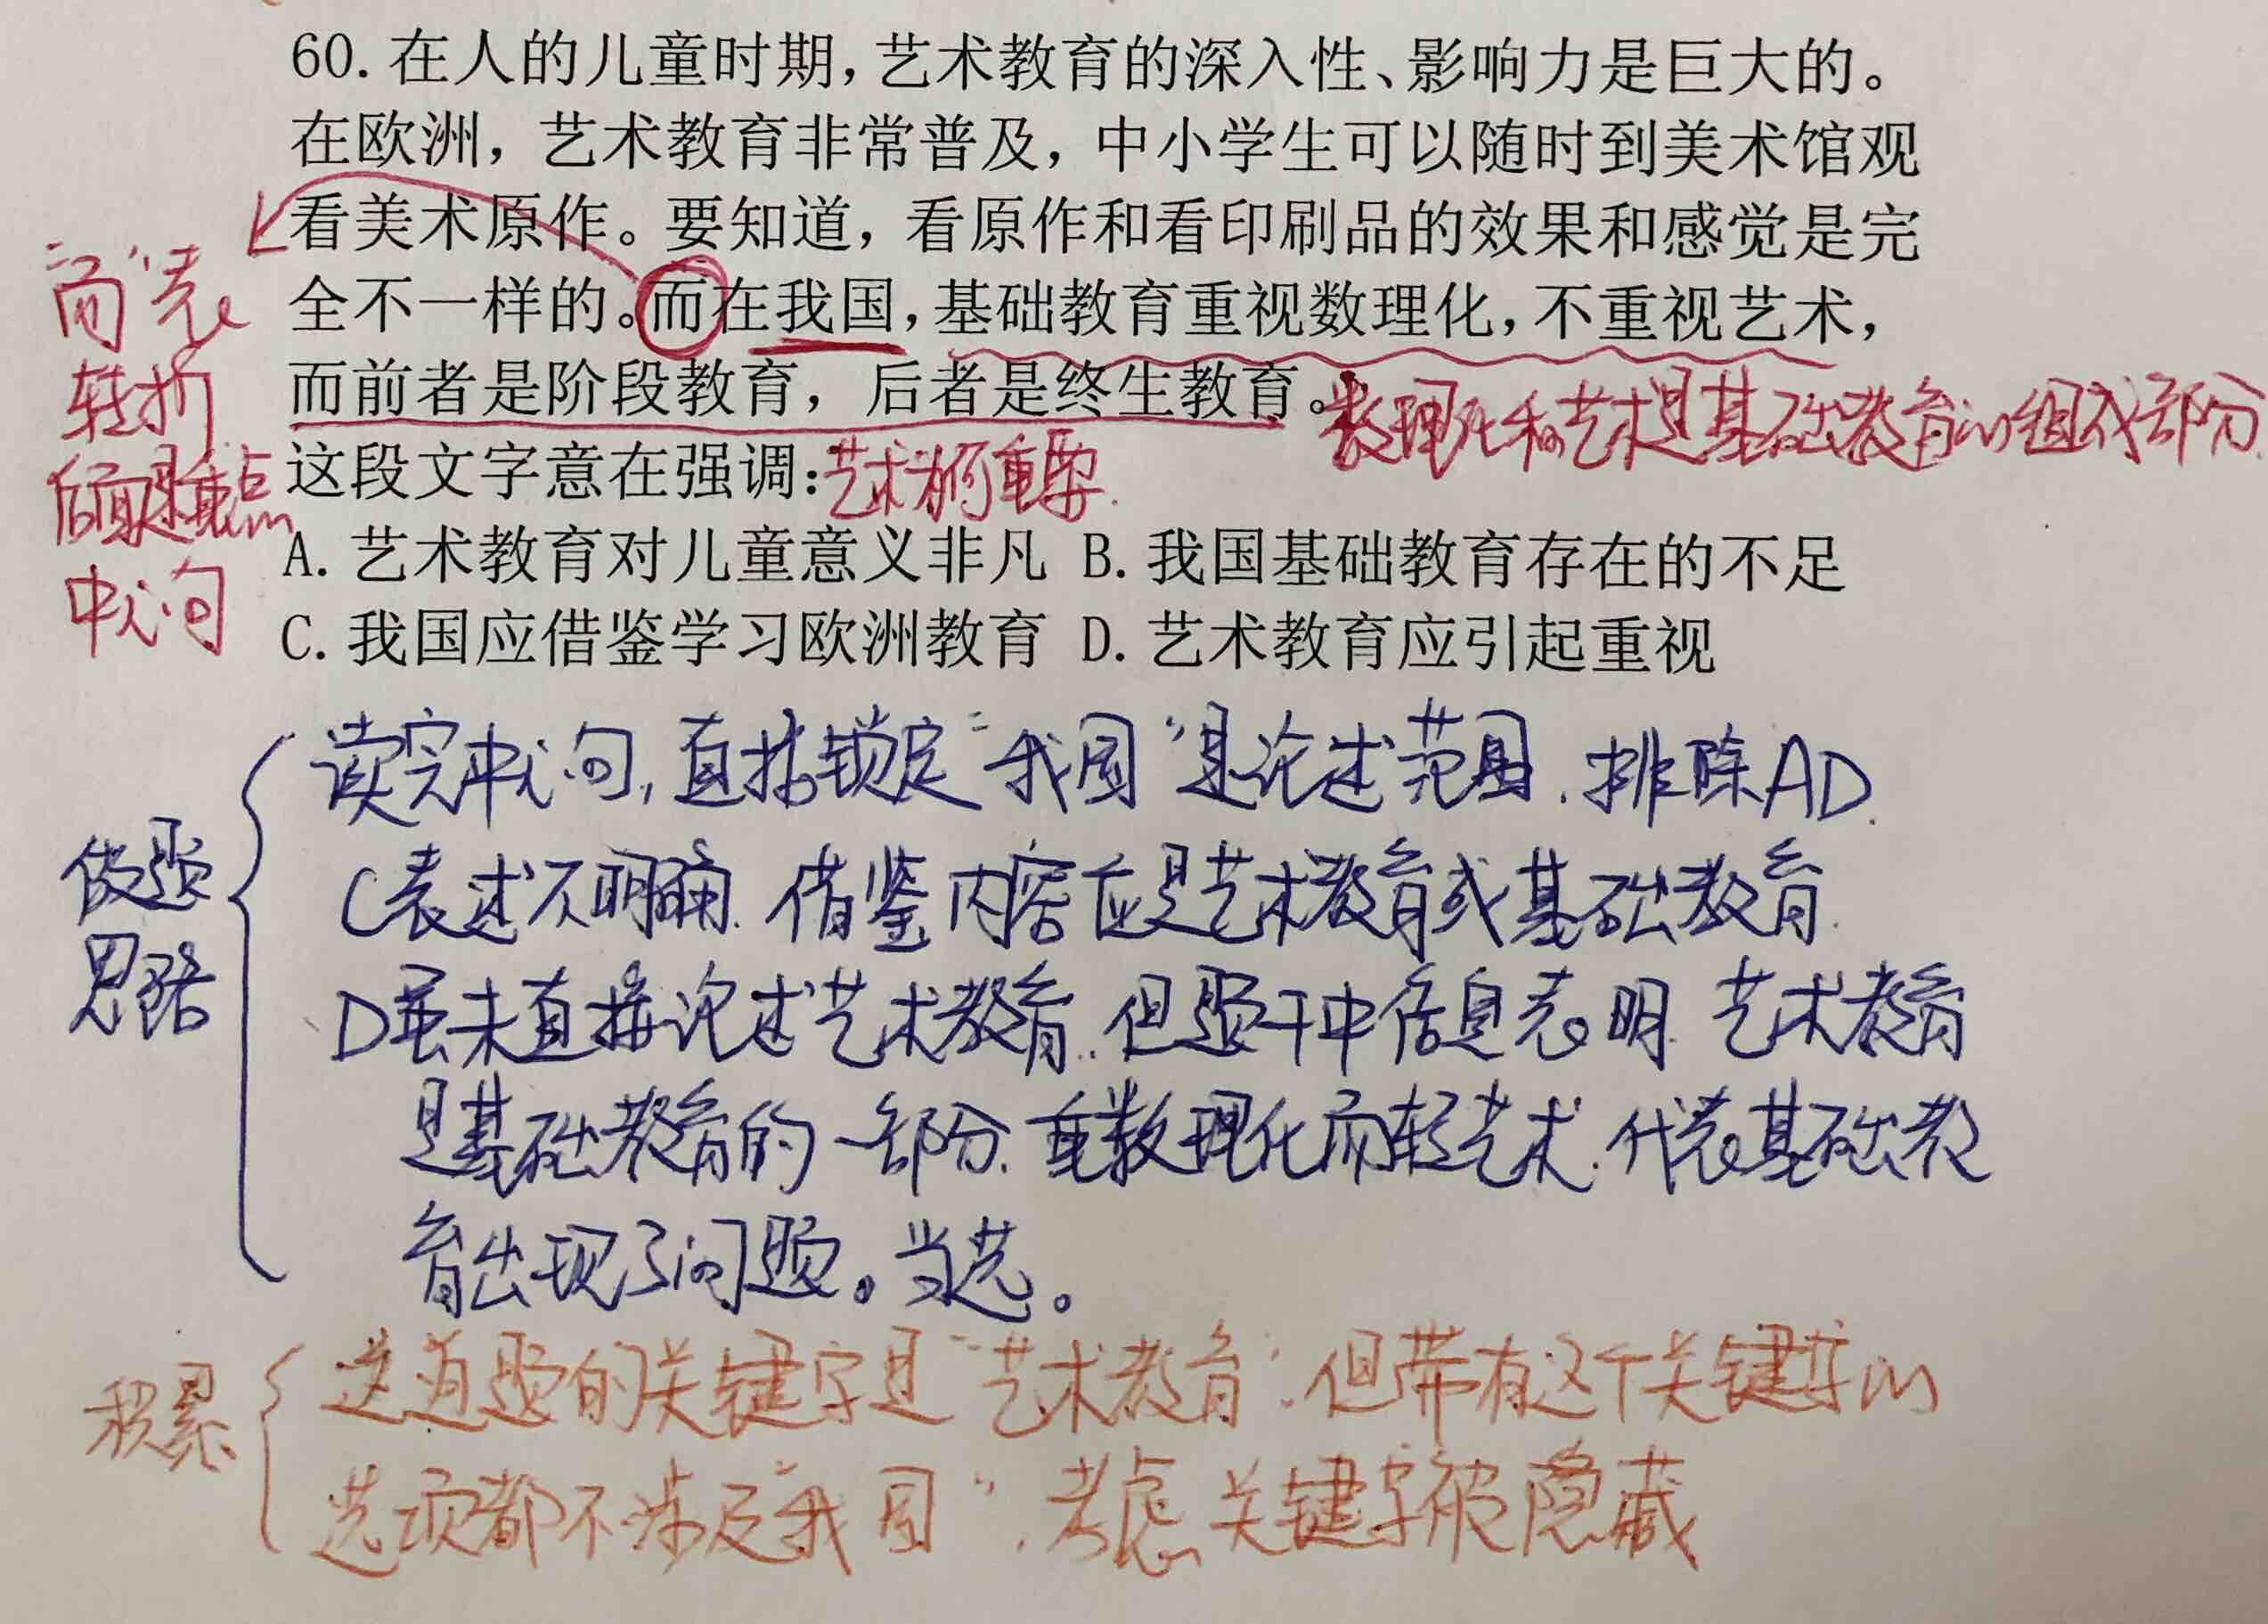 60. 在人的儿童时期，艺术教育的深入性、影响力是巨大的。
在欧洲，艺术教育非常普及，中小学生可以随时到美术馆观
看美术原作。要知道，看原作和看印刷品的效果和感觉是完
全不一样的。而在我国，基础教育重视数理化，不重视艺术，
而前者是阶段教育，后者是终生教育。
数理化和艺术是基础教育的组成部分
“而”表
转折
后面是重点
中心句
这段文字意在强调：
艺术很重要.
A. 艺术教育对儿童意义非凡 B. 我国基础教育存在的不足
C. 我国应借鉴学习欧洲教育 D. 艺术教育应引起重视
做题
思路
读完中心句，直接锁定“我国”是论述范围. 排除AD.
C表述不明确. 借鉴内容应是艺术教育或基础教育.
D虽未直接论述艺术教育. 但题干中信息表明. 艺术教育
是基础教育的一部分. 重数理化而轻艺术. 代表基础教
育出现了问题。当选。
积累
这道题的关键字是“艺术教育”. 但带有这个关键字的
选项都不涉及“我国”. 考虑关键字被隐藏